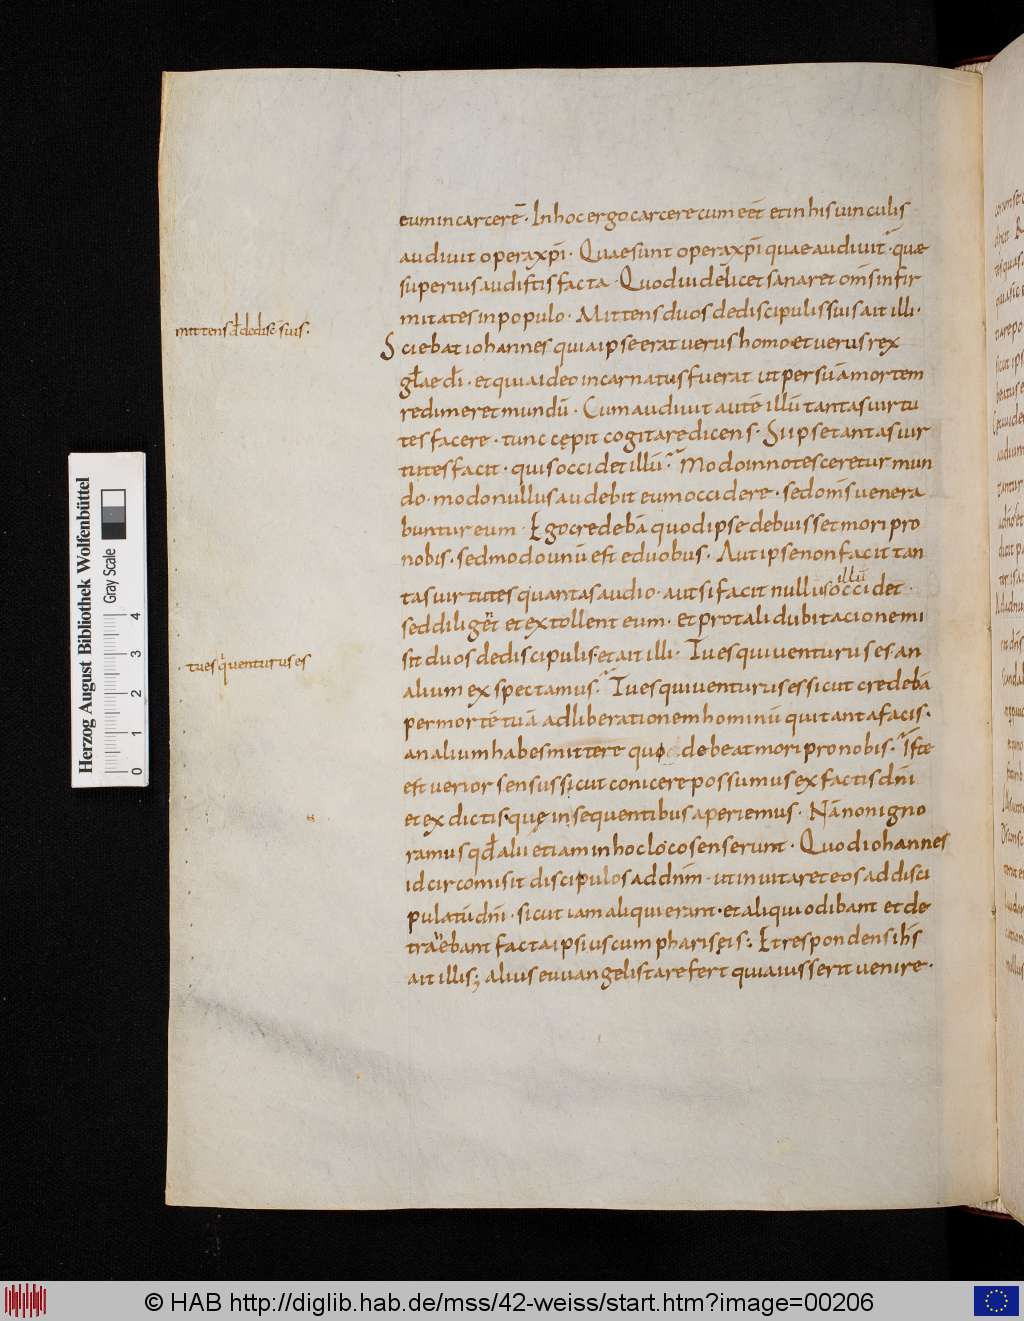 eum in carcerē. In hoc ergo carcere cum eēt et in his uinculis
audiuit opera xp̄i. Quae sunt opera xp̄i quae audiuit. quae
superius audistis facta. Quod uidelicet sanaret om̄s infir
mitates in populo. Mittens duos de discipulis suis ait illi.
mittens d̄ de disc̄ suis.
Sciebat iohannes quia ipse erat uerus homo et uerus rex
gl̄ae dī. et quia ideo incarnatus fuerat ut per suā mortem
redimeret mundū. Cum audiuit autē illū tantas uirtu
tes facere. tunc cępit cogitare dicens. Si ipse tantas uir
tutes facit. quis occidet illū. Modo innotesceretur mun
do. modo nullus audebit eum occidere. sed om̄s uenera
buntur eum. Ego credebā quod ipse debuisset mori pro
nobis. sed modo unū est e duobus. Aut ipse non facit tan
tas uirtutes quantas audio. aut si facit nullus illū occidet.
sed diligēt et extollent eum. et pro tali dubitacione mi
sit duos de discipulis et ait illi. Tu es qui uenturus es. an
.tu es q uenturus es
alium expectamus. Tu es qui uenturus es sicut credebā
per mortē tuā ad liberationem hominū qui tanta facis.
an alium habes mittere qui debeat mori pro nobis. Iste
est uerior sensus sicut conicere possumus ex factis dn̄i
et ex dictis. quę in sequentibus aperiemus. Nā non igno
ramus qd̄ alii etiam in hoc loco senserunt. Quod iohannes
idcirco misit discipulos ad dn̄m. ut inuitaret eos ad disci
pulatū dn̄i. sicut iam aliqui erant. et aliqui odibant et de
trahebant facta ipsius cum phariseis; Et respondens ih̄s
ait illis; alius euuangelista refert quia iusserit uenire.
Herzog August Bibliothek Wolfenbüttel
Gray Scale
0 1 2 3 4
© HAB http://diglib.hab.de/mss/42-weiss/start.htm?image=00206